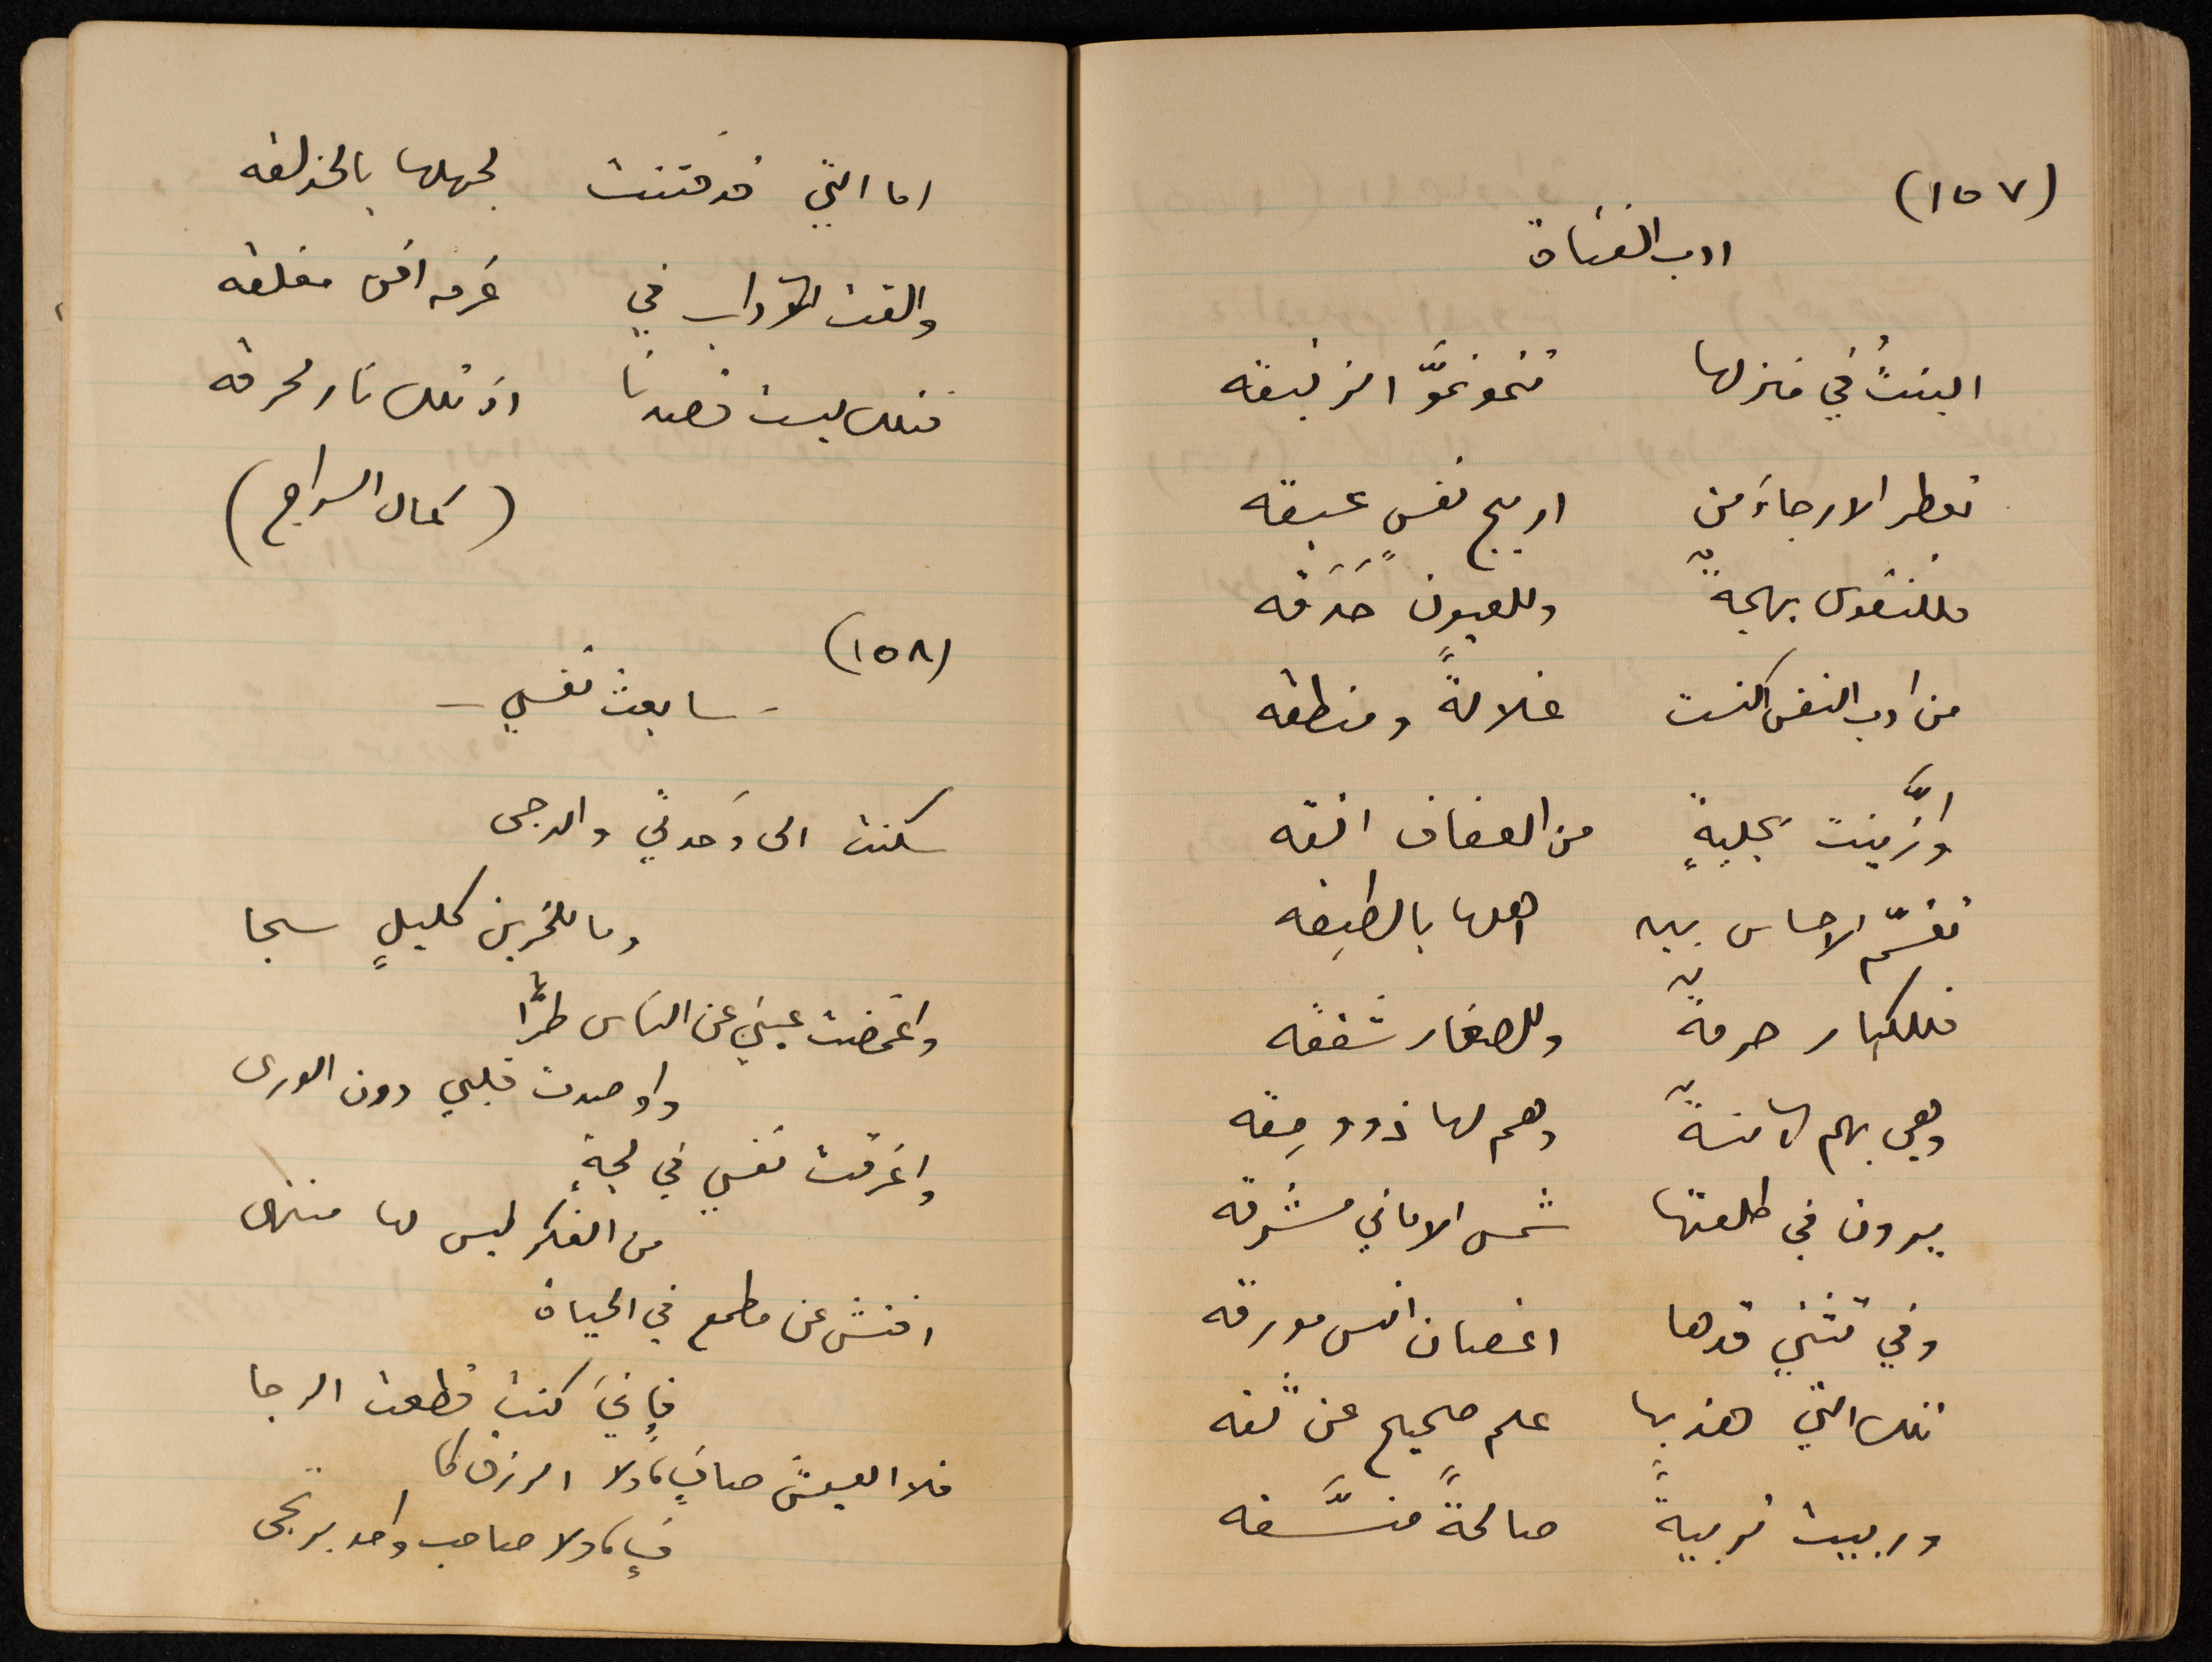 (١٥٧)
ادب الفتاة
البنتُ في منزلها تنمو نموَّ الزنبقه
تعطر الارجاءَ من اريج نفسٍ عبقه
فللنفوس بهجةٌ وللعيون حَدَقه
من ادب النفس اكتست غلالةً ومنطقه
وازَّينت بحليةٍ من العفاف انقه
تقسّم الاحساس بين اهلها بالطبقه
فللكبار حرمةٌ وللصغار شفقه
وهي بهم آمنةٌ وهم لها ذوو مِقه
يرون في طلعتها شمس الاماني مشرقه
وفي تثني قدها اغصان انس مورقه
تلك التي هذبها علم صحيح عن ثقه
وربيت تربيةً صالحةً منسَّقه
اما التي قد فتنت لجهلها بالحذلقه
والقت الآداب في غرفه امس مغلقه
فتلك ليست قصدنا اذ تلك نار محرقه
(كمال السراج)
(١٥٨)
- سابعث نفسي -
سكنت الى وَحدتي والدجى
وما للحزين كليلٍ سجا
واغمضت عيني عن الناس طرًّا
واوصدت قلبي دون الورى
واغرقت نفسي في لجةٍ
من الفكر ليس لها منتهى
افتش عن مطمع في الحياة
فإني كنت قطعت الرجا
فلا العيش صافٍ، ولا الرزق كا
فٍ، ولا صاحب واحد يرتجى